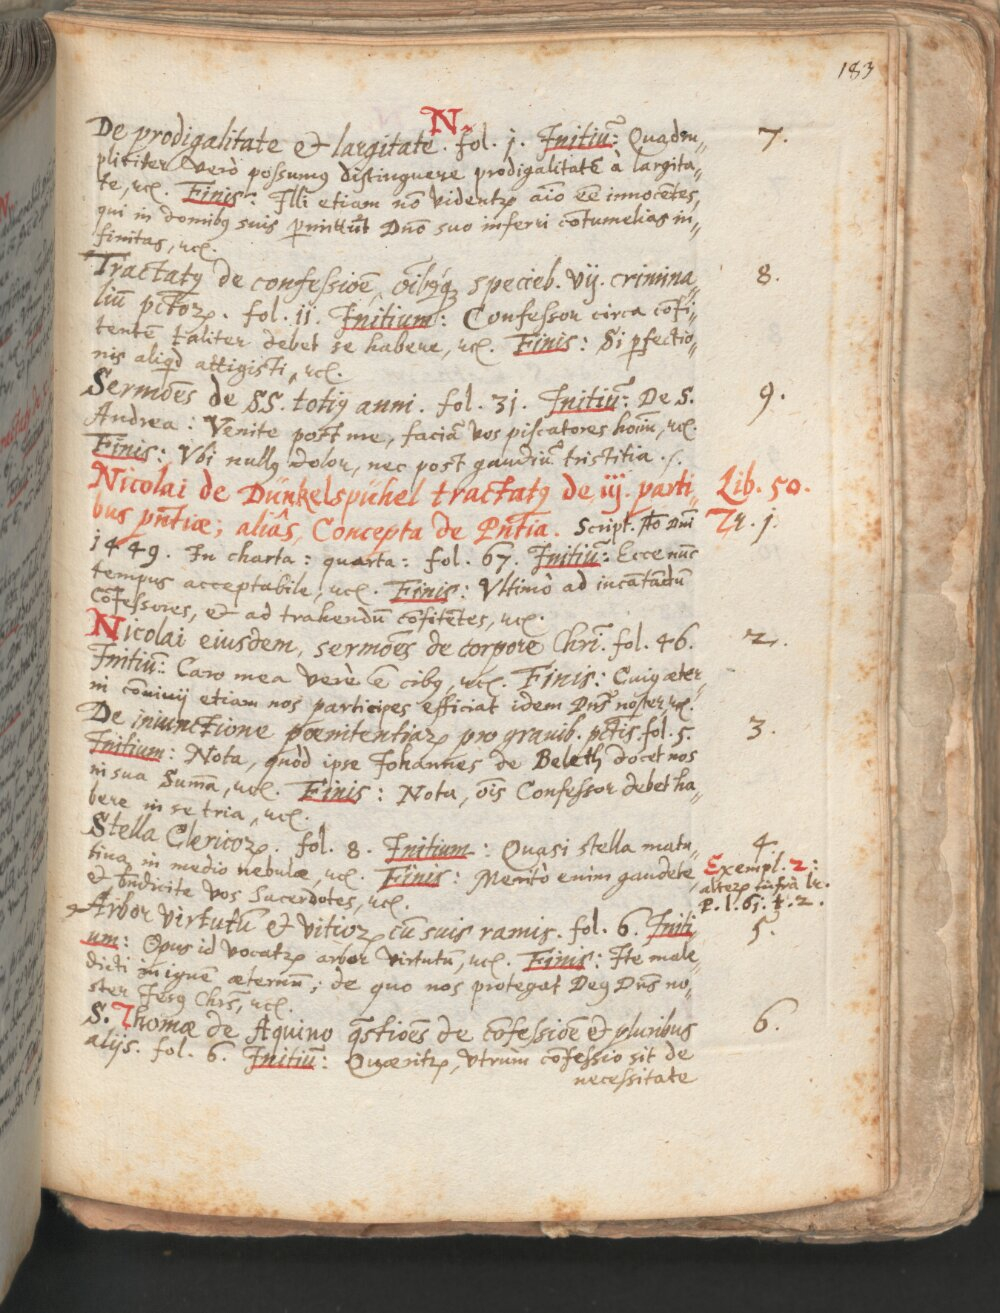 183
N.
De prodigalitate et largitate. fol. j. Initiũ: Quadru„ 7.
pliciter verò possumꝯ distinguere prodigalitatẽ à largita„
te, ꝛcꝭ. Finis: Illi etiam nõ videntꝛ aĩo eẽ innocẽtes,
qui in domibꝯ suis ꝑmittũt Dnõ suo inferri cõtumelias in„
finitas, ꝛcꝭ.
Tractatꝯ de confessiõe, õibꝯqꝫ specieb. vij. crimina„ 8.
liũ pctõꝝ. fol. ii. Initium: Confessor circa cõfi„
tentẽ taliter debet se habere, ꝛcꝭ. Finis: Si ꝑfectio„
nis aliqd attigisti, ꝛcꝭ.
Sermões de SS. totiꝯ anni. fol. 31. Initiũ: De S. 9.
Andrea: Venite post me, faciã vos piscatores homĩu, ꝛcꝭ.
Finis: Vbi nullꝯ dolor, nec post gaudiũ tristitia ./.
Nicolai de Dünkelspühel tractatꝯ de iij. parti„ Lib. 50.
bus pñtiæ; aliâs, Concepta de Pñtia. Script. Ao Dñi Tr. j.
1449. In charta: quarta: fol. 67. Initiũ: Ecce nũc
tempus acceptabile, ꝛcꝭ. Finis: Vltimò ad incãtãdũ
cõfessores, et ad trahendũ cõfitẽtes, ꝛcꝭ.
Nicolai eiusdem, sermões de corpore Chrĩ. fol. 46. 2.
Initiũ: Caro mea verè ẽ cibꝯ, ꝛcꝭ. Finis: Cuiꝯ æter„
ni cõuiuij etiam nos participes efficiat idem Dñs noster ꝛcꝭ.
De iniunctione pœnitentiaꝝ pro grauib. pctis. fol. 5. 3.
Initium: Nota, quòd ipse Johannes de Beleth docet nos
in sua Sum̃a, ꝛcꝭ. Finis: Nota, õis Confessor debet ha„
bere in se tria, ꝛcꝭ.
Stella Clericoꝝ. fol. 8. Initium: Quasi stella matu„ 4.
tina in medio nebulæ, ꝛcꝭ. Finis: Meritò enim gaudete, Exempl. 2:
et bñdicite vos Sacerdotes, ꝛcꝭ. alterꝝ infrà lr.
P. l. 65. t. 2.
Arbor virtutũ et vitioꝝ cũ suis ramis. fol. 6. Initi 5.
um: Opus id vocatꝛ arbor virtutũ, ꝛcꝭ. Finis: Ite male„
dicti in ignẽ æternũ; de quo nos protegat Deꝯ Dñs no„
ster Jesꝯ Chrs̃, ꝛcꝭ.
S. Thomæ de Aquino q̃stiões de cõfessiõe et pluribus 6.
alijs. fol. 6. Initiũ: Quæritꝛ, vtrum cõfessio sit de
necessitate